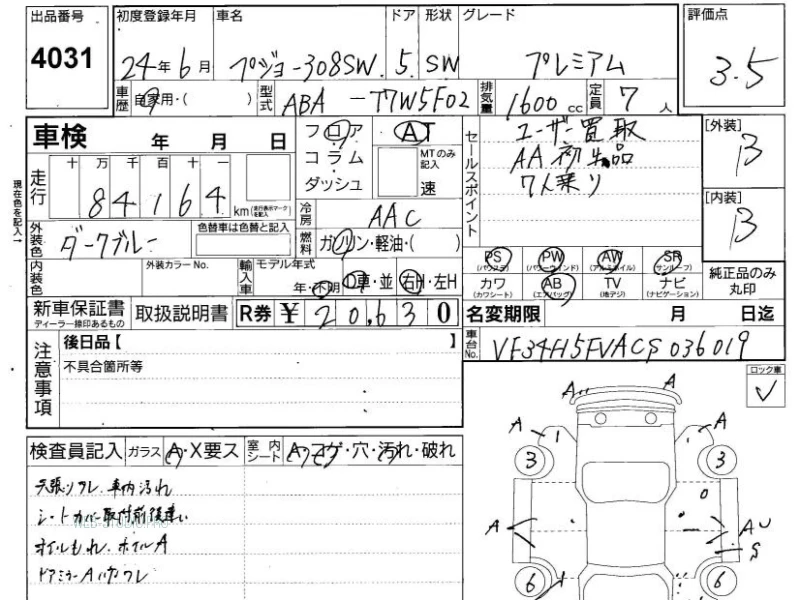 出品番号 初度登録年月 車名 ドア 形状 グレード 評価点
4031 24年6月 プジョー308SW. 5. SW プレミアム 3.5
車歴 自家用・( ) 型式 ABA-T7W5F02 排気量 1600cc 定員 7人
車検 年 月 日 フロア AT セールスポイント ユーザー買取 [外装] B
コラム MTのみ記入 AA初出品
ダッシュ 速 7人乗り [内装] B
走行 十万千百十一
84164 km (走行表示マークを記入)
現在色を記入→
冷房 AAC
外装色 ダークブルー 色替車は色替と記入 燃料 ガソリン・軽油・( )
PS (パワステ) PW (パワーウィンド) AW (アルミホイル) SR (サンルーフ)
内装色 外装カラーNo. 輸入車 モデル年式 年・不明 D車・並 右H・左H
カワ (カワシート) AB (エアバッグ) TV (地デジ) ナビ (ナビゲーション) 純正品のみ丸印
新車保証書 ディーラー捺印あるもの 取扱説明書 R券 ¥20,630 名変期限 月 日迄
車台No. VF34H5FVACS036019
注意事項 後日品【 】
不具合箇所等
ロック車
✓
検査員記入 ガラス A・X要ス 室内シート A・コゲ・穴・汚れ・破れ
天張リワレ 車内汚れ
シートカバー取付前後違い
オイルもれ ホイルA
ドアミラーA
A A
A 1 A
3 3
A AU
S
6 6